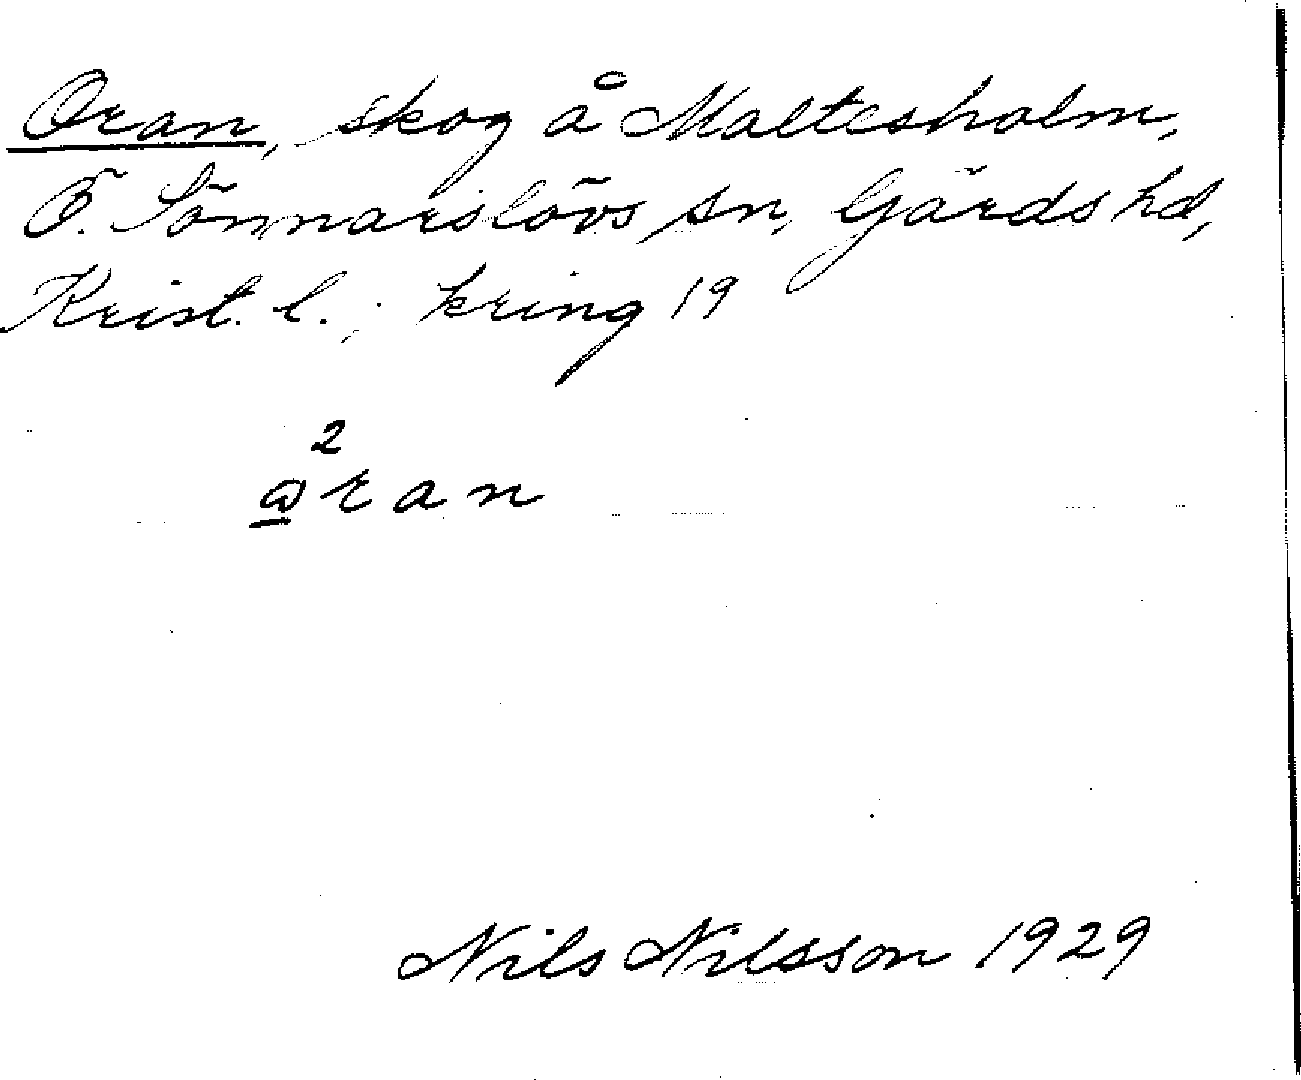 Oran, skog å Maltesholm,
Ö. Sönnarslövs sn, Gärds hd,
Krist. l.; kring 19
2
a̲ran
Nils Nilsson 1929